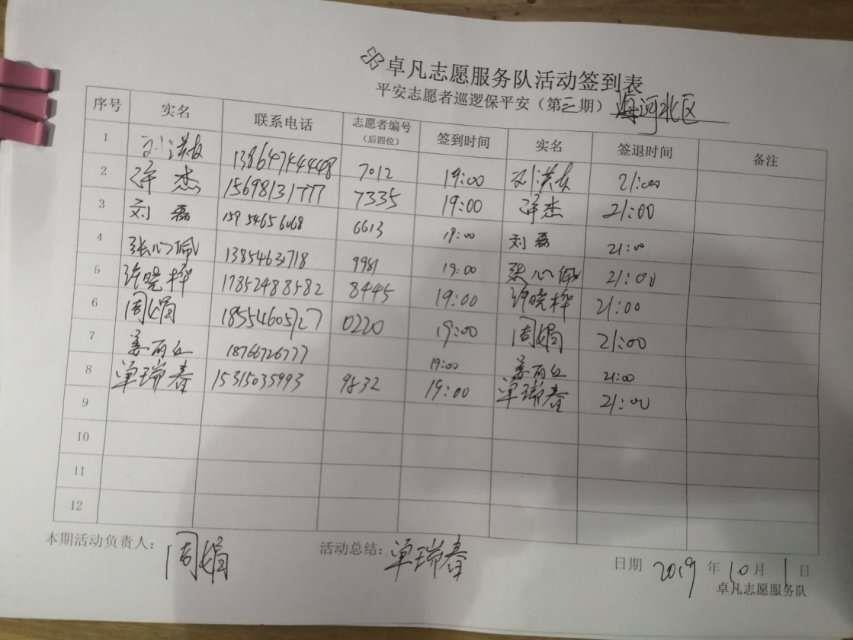 卓凡志愿服务队活动签到表
平安志愿者巡逻保平安（第三期） 河北区
序号 实名 联系电话 志愿者编号（后四位） 签到时间 实名 签退时间 备注
1 刘洪友 13864744448 7012 19:00 刘洪友 21:00
2 杰 15698131777 7335 19:00 杰 21:00
3 刘磊 6613 19:00 刘磊 21:00
4 张心佩 13854631718 9981 19:00 张心佩 21:00
5 许晓桦 17852488582 8445 19:00 许晓桦 21:00
6 周娟 18554605727 0220 19:00 周娟 21:00
7 姜丽红 18766726777 19:00 姜丽红 21:00
8 单瑞春 15315035993 9832 19:00 单瑞春 21:00
9
10
11
12
本期活动负责人： 周娟 活动总结： 单瑞春 日期 2019 年 10 月 1 日
卓凡志愿服务队